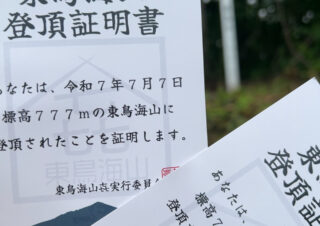 東鳥海山
登頂証明書
あなたは、令和7年7月7日
標高777mの東鳥海山に
登頂されたことを証明します。
東鳥海山
東鳥海山㐂実行委員
東
登頂証
あなたは、
標高7
登頂さ